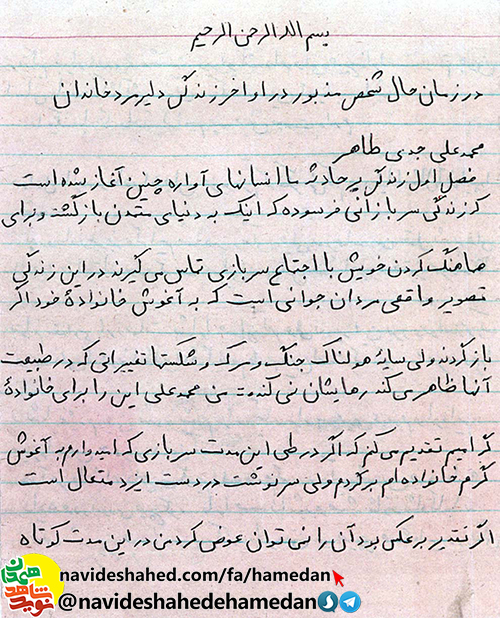 بسم الله الرحمن الرحیم
در زمان حال شخص مذبور در اواخر زندگی دلیرمرد خاندان
محمد علی جدی طاهر
فصل اول زندگی پر حادثه با انسانهای آواره چنین آغاز شده است
که زندگی سربازانی فرسوده که اینک به دنیای متمدن بازگشته و برای
هماهنگ کردن خویش با اجتماع سربازی تماس می گیرند در این زندگی
تصویر واقعی مردان جوانی است که به آغوش خانوادهٔ خود اگر
باز گردند ولی سایهٔ هولناک جنگ و مرگ و شکستها تغییراتی که در طبیعت
آنها ظاهر می کند رهایشان نمی کند من محمد علی این را برای خانوادهٔ
گرامیم تقدیم می کنم که اگر در طی این مدت سربازی که امیدوارم به آغوش
گرم خانواده ام برگردم ولی سرنوشت در دست ایزد متعال است
اگر تقدیر برعکس بود آن را نمی توان عوض کرد من در این مدت کوتاه
navideshahed.com/fa/hamedan
@navideshahedehamedan
نوید شاهد همدان